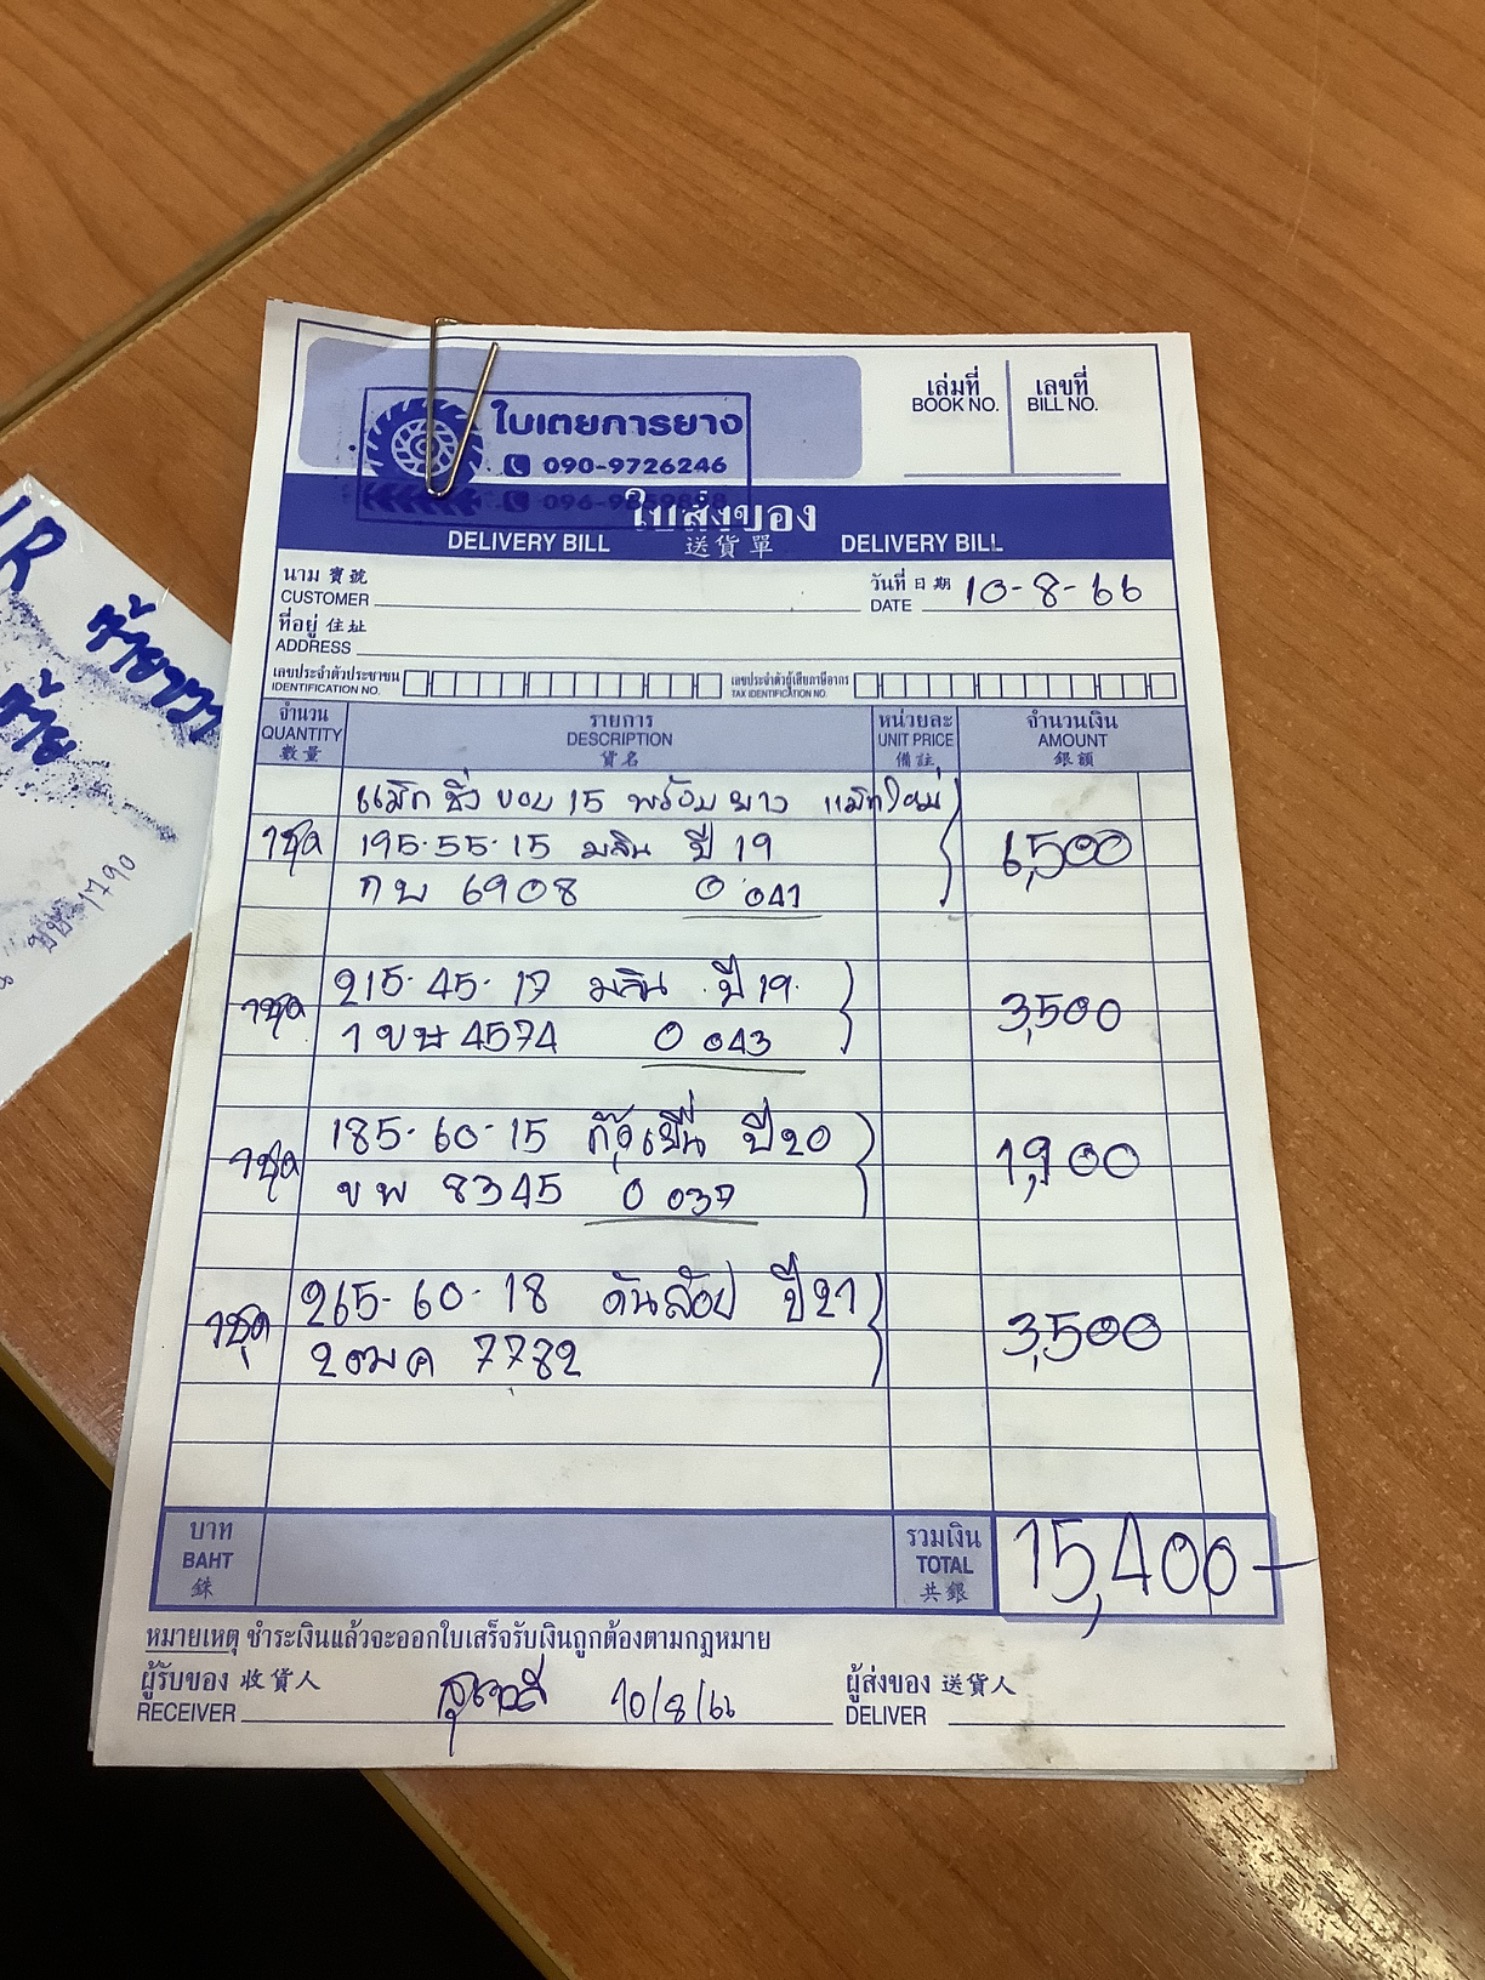 ใบเตยการยาง
090-9726246
เล่มที่
BOOK NO.
เลขที่
BILL NO.
ใบส่งของ
DELIVERY BILL 送貨單 DELIVERY BILL
นาม 寶號
CUSTOMER
วันที่ 日期
DATE 10-8-66
ที่อยู่ 住址
ADDRESS
เลขประจำตัวประชาชน
IDENTIFICATION NO.
เลขประจำตัวผู้เสียภาษีอากร
TAX IDENTIFICATION NO.
จำนวน รายการ หน่วยละ จำนวนเงิน
QUANTITY DESCRIPTION UNIT PRICE AMOUNT
數量 貨名 備註 銀額
แม็ก ซิ่ง ขอบ 15 พร้อม ยาง แม็กใหม่
1ชุด 195-55-15 มลิน ปี 19 6,500
กบ 6908 0 041
215-45-17 มลิน ปี 19
1ชุด 1 ขษ 4574 0 043 3,500
185-60-15 ปี 20
1ชุด ขพ 8345 0 037 1,900
265-60-18 ดันล้อป ปี 21
1ชุด 2ฒค 7782 3,500
บาท
BAHT
銖
รวมเงิน
TOTAL
共銀
15,400-
หมายเหตุ ชำระเงินแล้วจะออกใบเสร็จรับเงินถูกต้องตามกฎหมาย
ผู้รับของ 收貨人
RECEIVER 10/8/66
ผู้ส่งของ 送貨人
DELIVER
1790